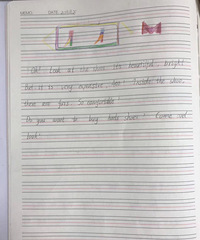 MEMO DATE
Look! Look at the shoe. It's beautiful, bright
But it is very expensive, too! Inside the shoe,
there are furs. So comfortable!
Do you want to buy shoes? Come and
look!